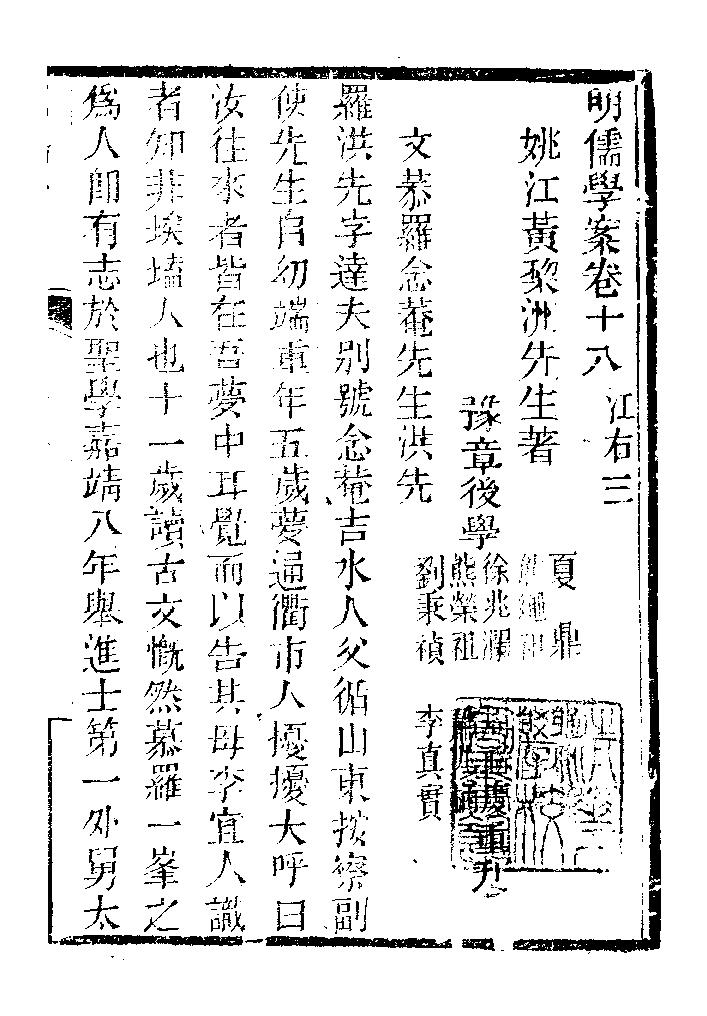 明儒學案卷十八 江右三
姚江黃黎洲先生著
豫章後學
夏鼎
徐兆瀾
熊榮祖
劉秉禎 李真實
重刋
文恭羅念菴先生洪先
羅洪先字達夫别號念菴吉水人父循山東按察副
使先生自幼端重年五歲夢通衢市人擾擾大呼曰
汝往來者皆在吾夢中耳覺而以告其母李宜人識
者知非埃壒人也十一歲讀古文慨然慕羅一峯之
為人卽有志於聖學嘉靖八年舉進士第一外舅太